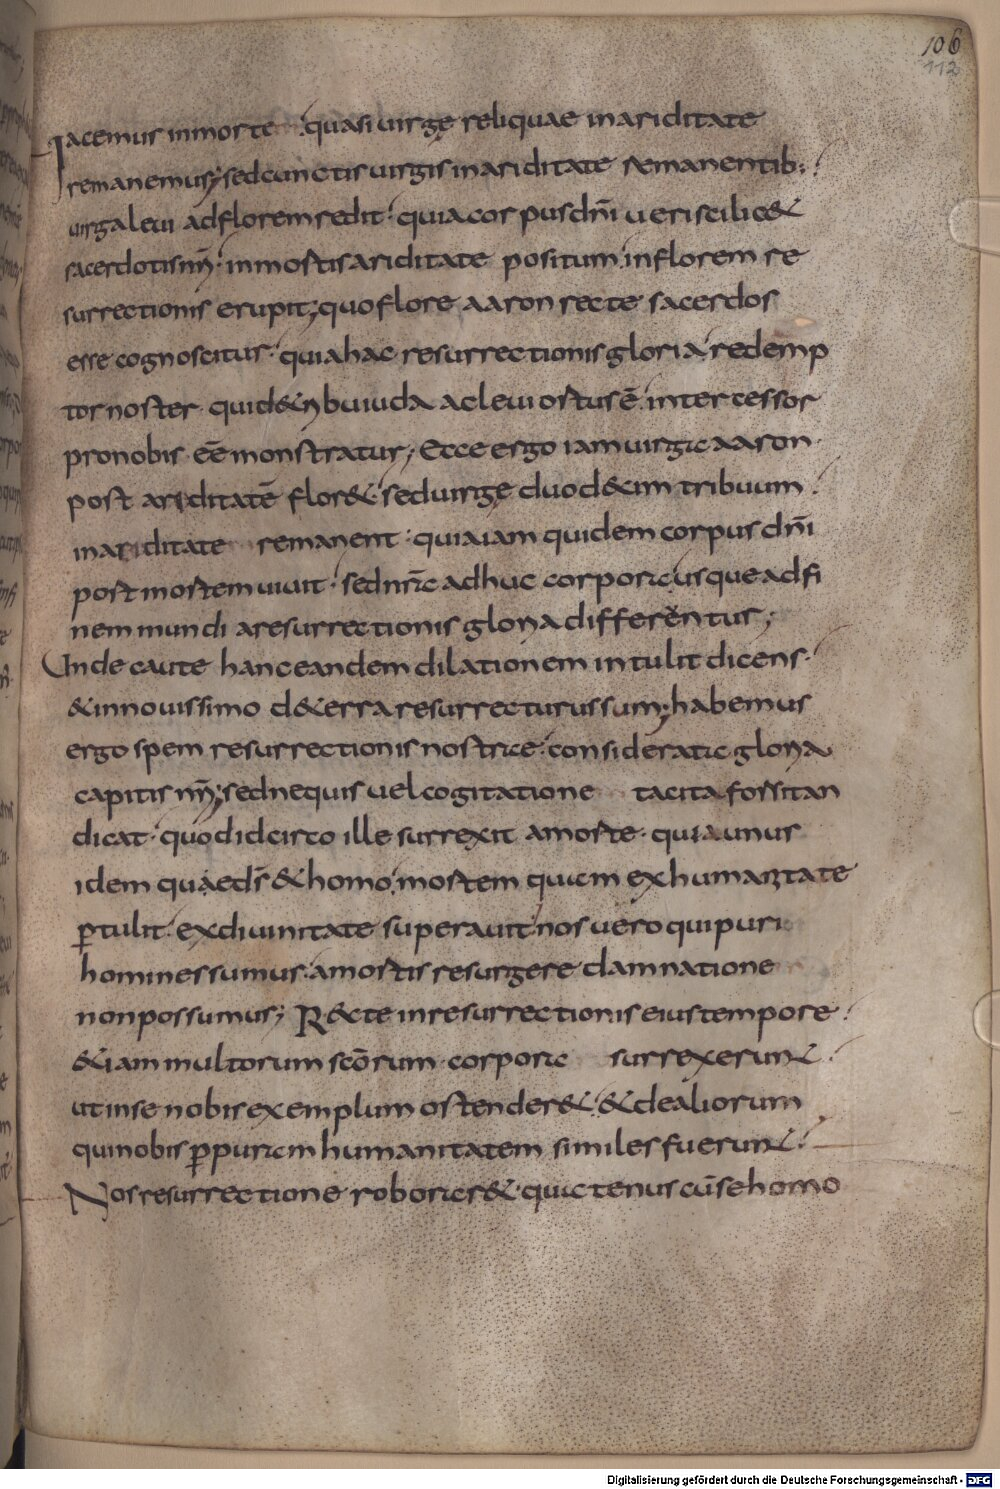 106
112
Iacemus in morte quasi uirgę reliquae in ariditate
remanemus; sed cunctis uirgis in ariditate remanentib:
uirga leui ad florem redit· quia corpus dn̄i ueri scilic&
sacerdotis nr̄i· in mortis ariditate positum in florem re
surrectionis erupit; quo flore aaron recte sacerdos
esse cognoscitur· quia hac resurrectionis gloria redemp
tor noster qui d& iuda ac leui ortus ē inter cessor
pro nobis eē monstratur; Ecce ergo iam uirga aaron
post ariditatē flor& sed uirgę duodecim tribuum
in ariditate remanent· quia iam quidem corpus dn̄i
post mortem uiuit· sed nr̄a adhuc corpora usque ad fi
nem mundi a resurrectionis gloria differentur;
Unde caute hanc eandem dilationem intulit dicens·
& in nouissimo d& erra resurrecturus sum; habemus
ergo spem resurrectionis nostrae· considerata gloria
capitis nr̄i; sed nequis uel cogitatione tacita forsitan
dicat· quod idcirco ille surrexit a morte· quia unus
idem quae ds̄ & homo mortem quam ex humanitate
ꝑtulit ex diuinitate superauit nos uero qui puri
homines sumus· a mortis resurgere damnatione
non possumus; R&cte in resurrectionis eius tempore
& iam multorum scōrum corpora surrexerunt
ut in se nobis exemplum ostender& & de aliorum
qui nobis ꝑ puram humanitatem similes fuerunt
Nos resurrectione roborar& quatenus cū se homo
Digitalisierung gefördert durch die Deutsche Forschungsgemeinschaft - DFG